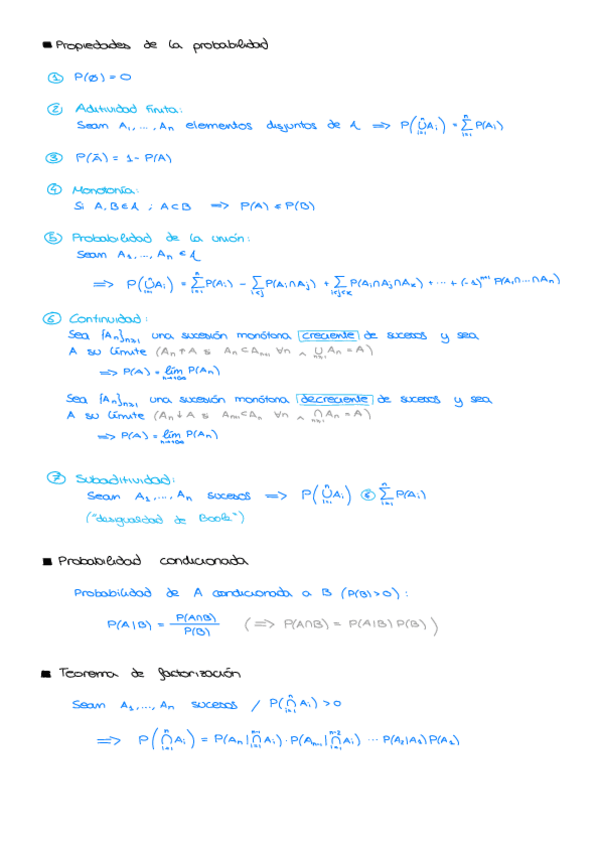 ■ Propiedades de la probabilidad
① P(∅) = 0
② Aditividad finita:
Sean A₁, ..., Aₙ elementos disjuntos de 𝒜 ⟹ P(⋃ᵢ₌₁ⁿ Aᵢ) = ∑ᵢ₌₁ⁿ P(Aᵢ)
③ P(Ā) = 1 - P(A)
④ Monotonía:
Si A, B ∈ 𝒜 ; A ⊂ B ⟹ P(A) ≤ P(B)
⑤ Probabilidad de la unión:
Sean A₁, ..., Aₙ ∈ 𝒜
⟹ P(⋃ᵢ₌₁ⁿ Aᵢ) = ∑ᵢ₌₁ⁿ P(Aᵢ) - ∑ᵢ<ⱼ P(Aᵢ∩Aⱼ) + ∑ᵢ<ⱼ<ₖ P(Aᵢ∩Aⱼ∩Aₖ) + ... + (-1)ⁿ⁺¹ P(A₁∩...∩Aₙ)
⑥ Continuidad:
Sea {Aₙ}ₙ≥₁ una sucesión monótona creciente de sucesos y sea
A su límite (Aₙ ↑ A si Aₙ ⊂ Aₙ₊₁ ∀n ∧ ⋃ₙ≥₁ Aₙ = A)
⟹ P(A) = lím n→+∞ P(Aₙ)
Sea {Aₙ}ₙ≥₁ una sucesión monótona decreciente de sucesos y sea
A su límite (Aₙ ↓ A si Aₙ₊₁ ⊂ Aₙ ∀n ∧ ⋂ₙ≥₁ Aₙ = A)
⟹ P(A) = lím n→+∞ P(Aₙ)
⑦ Subaditividad:
Sean A₁, ..., Aₙ sucesos ⟹ P(⋃ᵢ₌₁ⁿ Aᵢ) ≤ ∑ᵢ₌₁ⁿ P(Aᵢ)
("desigualdad de Boole")
■ Probabilidad condicionada
Probabilidad de A condicionada a B (P(B) > 0):
P(A|B) = P(A∩B) / P(B) (⟹ P(A∩B) = P(A|B) P(B))
■ Teorema de factorización
Sean A₁, ..., Aₙ sucesos / P(⋂ᵢ₌₁ⁿ Aᵢ) > 0
⟹ P(⋂ᵢ₌₁ⁿ Aᵢ) = P(Aₙ|⋂ᵢ₌₁ⁿ⁻¹ Aᵢ) · P(Aₙ₋₁|⋂ᵢ₌₁ⁿ⁻² Aᵢ) ... P(A₂|A₁) P(A₁)